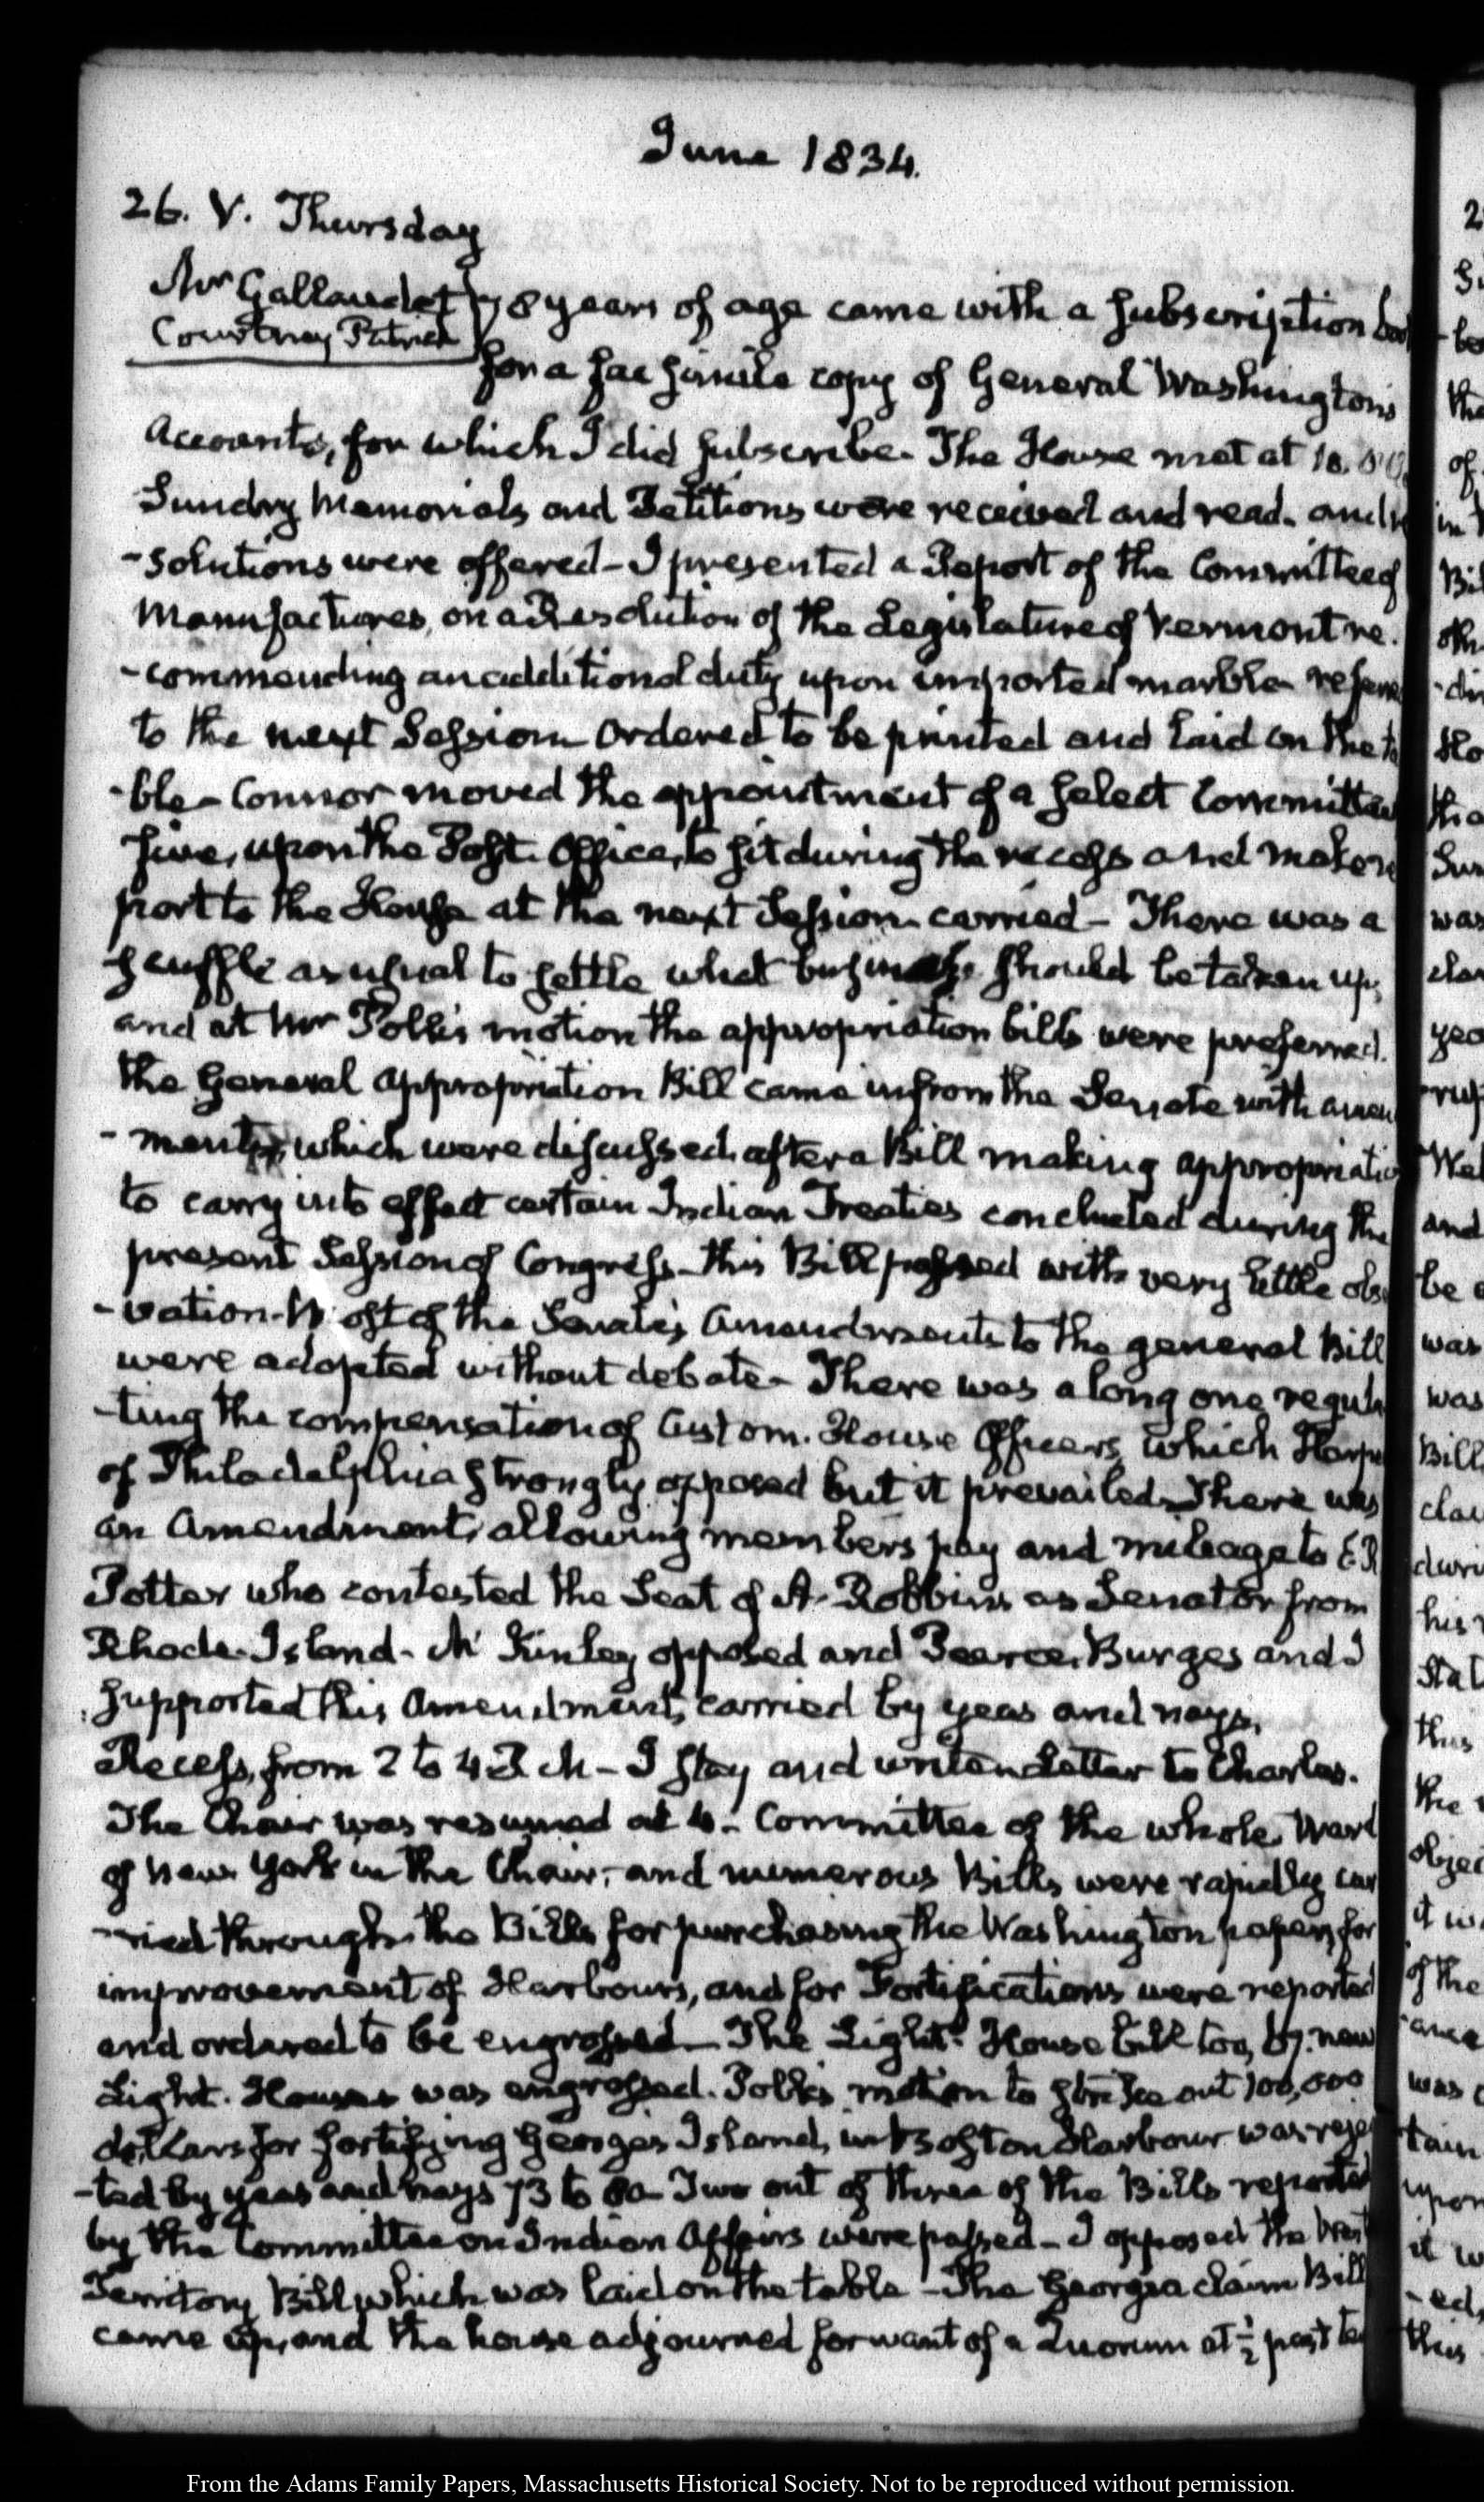 June 1834.
26. V. Thursday
Mr Gallaudet
Courtney Patrick
78 years of age came with a subscription
for a fac simile copy of General Washingtons
Accounts, for which I did subscribe. The House met at 10.
Sundry Memorials and Petitions were received and read. and re
-solutions were offered- I presented a Report of the Committee of
Manufactures, on a Resolution of the Legislature of Vermont re.
-commending an additional duty upon imported marble
to the next Session ordered to be printed and laid on the ta
-ble- Connor moved the appointment of a select Committee
five, upon the Post. Office, to sit during the recess and make re
port to the House at the next Session. carried- There was a
scuffle as usual to settle what business should be taken up,
and at Mr Polk's motion the appropriation bills were preferred.
The General Appropriation Bill came in from the Senate with amen
-ments, which were discussed after a Bill making appropriatio
to carry into effect certain Indian Treaties concluded during the
present Session of Congress- this Bill passed with very little obs
-vation. Most of the Senate's Amendments to the general Bill
were adopted without debate- There was a long one regula
-ting the compensation of Custom. House Officers, which Harpe
of Philadelphia strongly opposed but it prevailed. There was
an Amendment, allowing members pay and mileage to E R
Potter who contested the Seat of A. Robbins as Senator from
Rhode. Island- McKinley opposed and Pearce, Burges and I
supported this Amendment, carried by yeas and nays.
Recess, from 2 to 4 P. M- I stay and write a letter to Charles.
The Chair was resumed at 4- Committee of the whole, Ward
of New York in the Chair;- and numerous Bills were rapidly car
-ried through. the Bills for purchasing the Washington papers, for
improvement of Harbours, and for Fortifications were reported
and ordered to be engrossed- The Light. House bill too, 67. new
Light. Houses was engrossed. Polk's motion to strike out 100,000
dollars for fortifying Georges Island, in Boston Harbour was rejec
-ted by yeas and nays 73 to 80- Two out of three of the Bills reported
by the Committee on Indian Affairs were passed- I opposed the West
Territory Bill which was laid on the table- The Georgia claim Bill
came up, and the house adjourned for want of a Quorum at ½ past
From the Adams Family Papers, Massachusetts Historical Society. Not to be reproduced without permission.